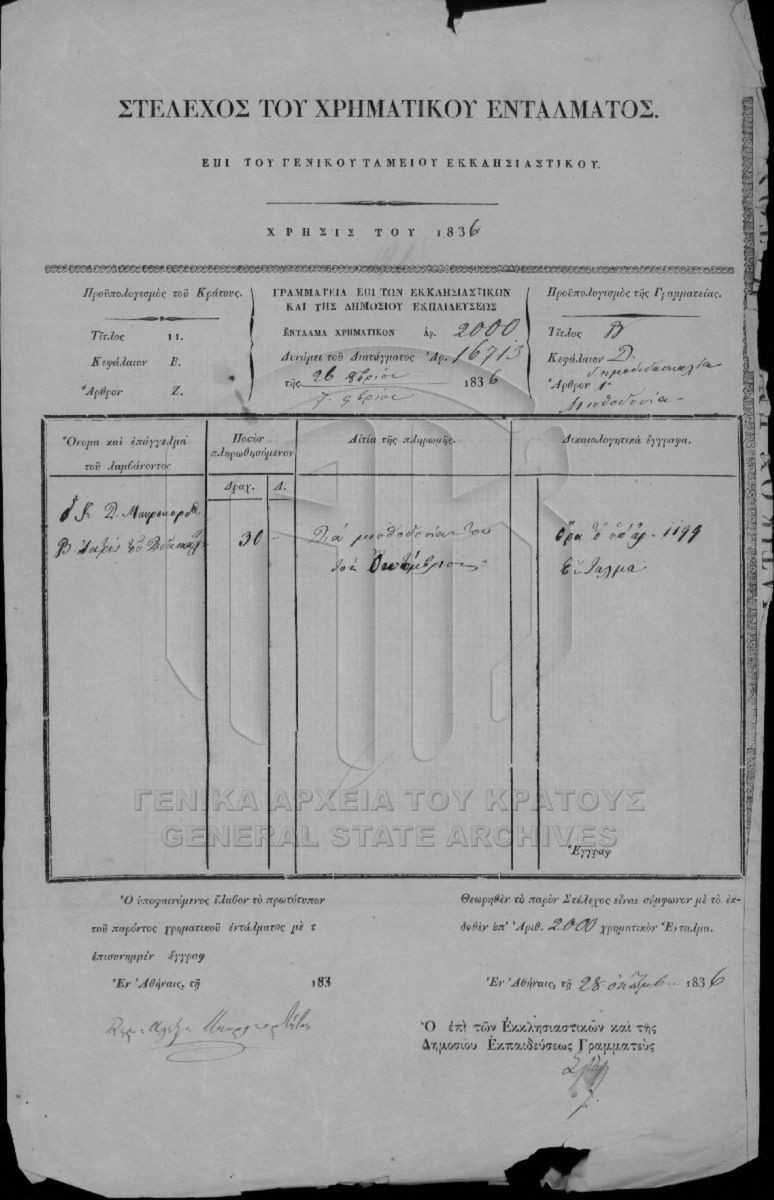 ΣΤΕΛΕΧΟΣ ΤΟΥ ΧΡΗΜΑΤΙΚΟΥ ΕΝΤΑΛΜΑΤΟΣ.
ΕΠΙ ΤΟΥ ΓΕΝΙΚΟΥ ΤΑΜΕΙΟΥ ΕΚΚΛΗΣΙΑΣΤΙΚΟΥ.
ΧΡΗΣΙΣ ΤΟΥ 1836
Προϋπολογισμὸς τοῦ Κράτους.
Τίτλος ΙΙ.
Κεφάλαιον Β.
Ἄρθρον Ζ.
ΓΡΑΜΜΑΤΕΙΑ ΕΠΙ ΤΩΝ ΕΚΚΛΗΣΙΑΣΤΙΚΩΝ
ΚΑΙ ΤΗΣ ΔΗΜΟΣΙΟΥ ΕΚΠΑΙΔΕΥΣΕΩΣ
ΕΝΤΑΛΜΑ ΧΡΗΜΑΤΙΚΟΝ Ἀρ. 2000
Δυνάμει τοῦ Διατάγματος Ἀρ. 16713
τῆς 26 8βρίου 1836
7. 9βρίου
Προϋπολογισμὸς τῆς Γραμματείας.
Τίτλος Β
Κεφάλαιον Δ.
δημοδιδασκαλία
Ἄρθρον 1
Μισθοδοσία
Ὄνομα καὶ ἐπάγγελμα
τοῦ λαμβάνοντος
Ποσὸν
πληρωθησόμενον
Αἰτία τῆς πληρωμῆς.
Δικαιολογητικὰ ἔγγραφα.
Δραχ. Λ.
30 -
Διὰ μισθοδοσίαν του
τοῦ Ὀκτωμβρίου
Ὅρα τὸ ὑπ' ἀρ. 1199
Ἔνταλμα
Ἔγγραφ
Ὁ ὑποφαινόμενος ἔλαβον τὸ πρωτότυπον
τοῦ παρόντος χρηματικοῦ ἐντάλματος μὲ τ
ἐπισυνημμέν ἔγγραφ
Ἐν Ἀθήναις, τῇ 183
Θεωρηθὲν τὸ παρὸν Στέλεχος εἶναι σύμφωνον μὲ τὸ ἐκ-
δοθὲν ὑπ' Ἀριθ. 2000 χρηματικὸν Ἔνταλμα.
Ἐν Ἀθήναις, τῇ 28 ὀκτωμβ. 1836
Ὁ ἐπὶ τῶν Ἐκκλησιαστικῶν καὶ τῆς
Δημοσίου Ἐκπαιδεύσεως Γραμματεὺς
ΓΕΝΙΚΑ ΑΡΧΕΙΑ ΤΟΥ ΚΡΑΤΟΥΣ
GENERAL STATE ARCHIVES